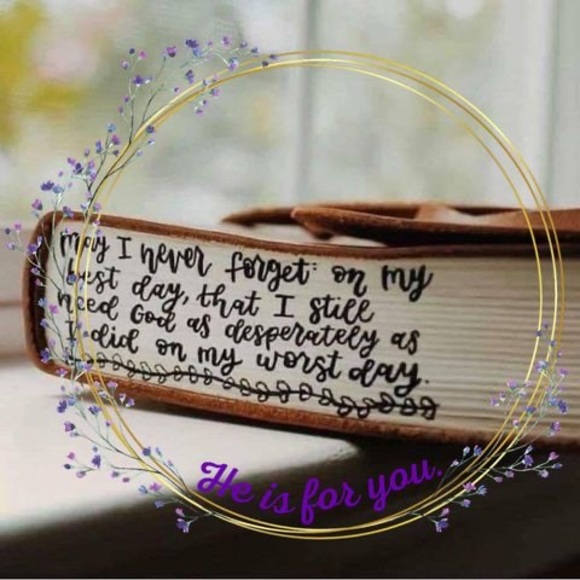 may I never forget on my
best day, that I still
need God as desperately as
I did on my worst day.
He is for you.